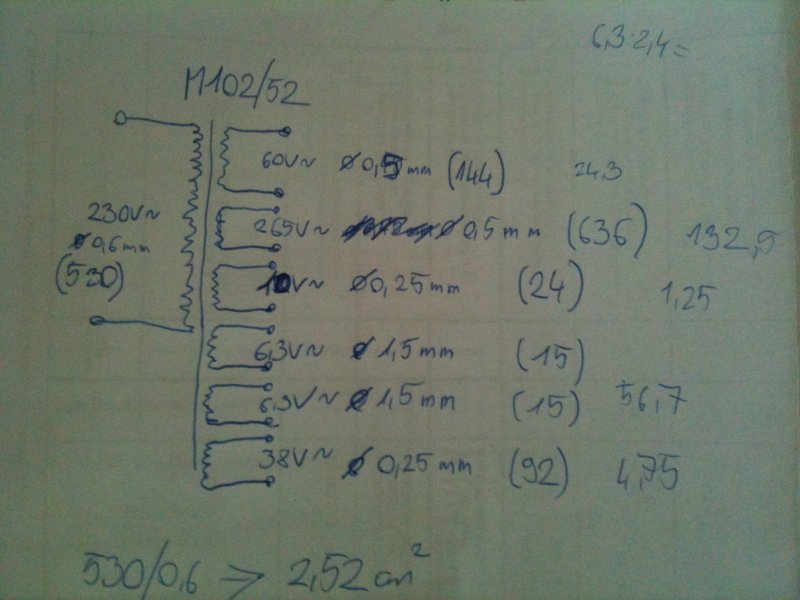 6,3·2,4=
M102/52
60V~ ø0,5mm (144) 24,3
230V~
ø0,6mm
(530)
265V~ ø0,5mm (636) 132,5
10V~ ø0,25mm (24) 1,25
6,3V~ ø1,5mm (15)
6,3V~ ø1,5mm (15) 56,7
38V~ ø0,25mm (92) 4,75
530/0,6 => 2,52cm²